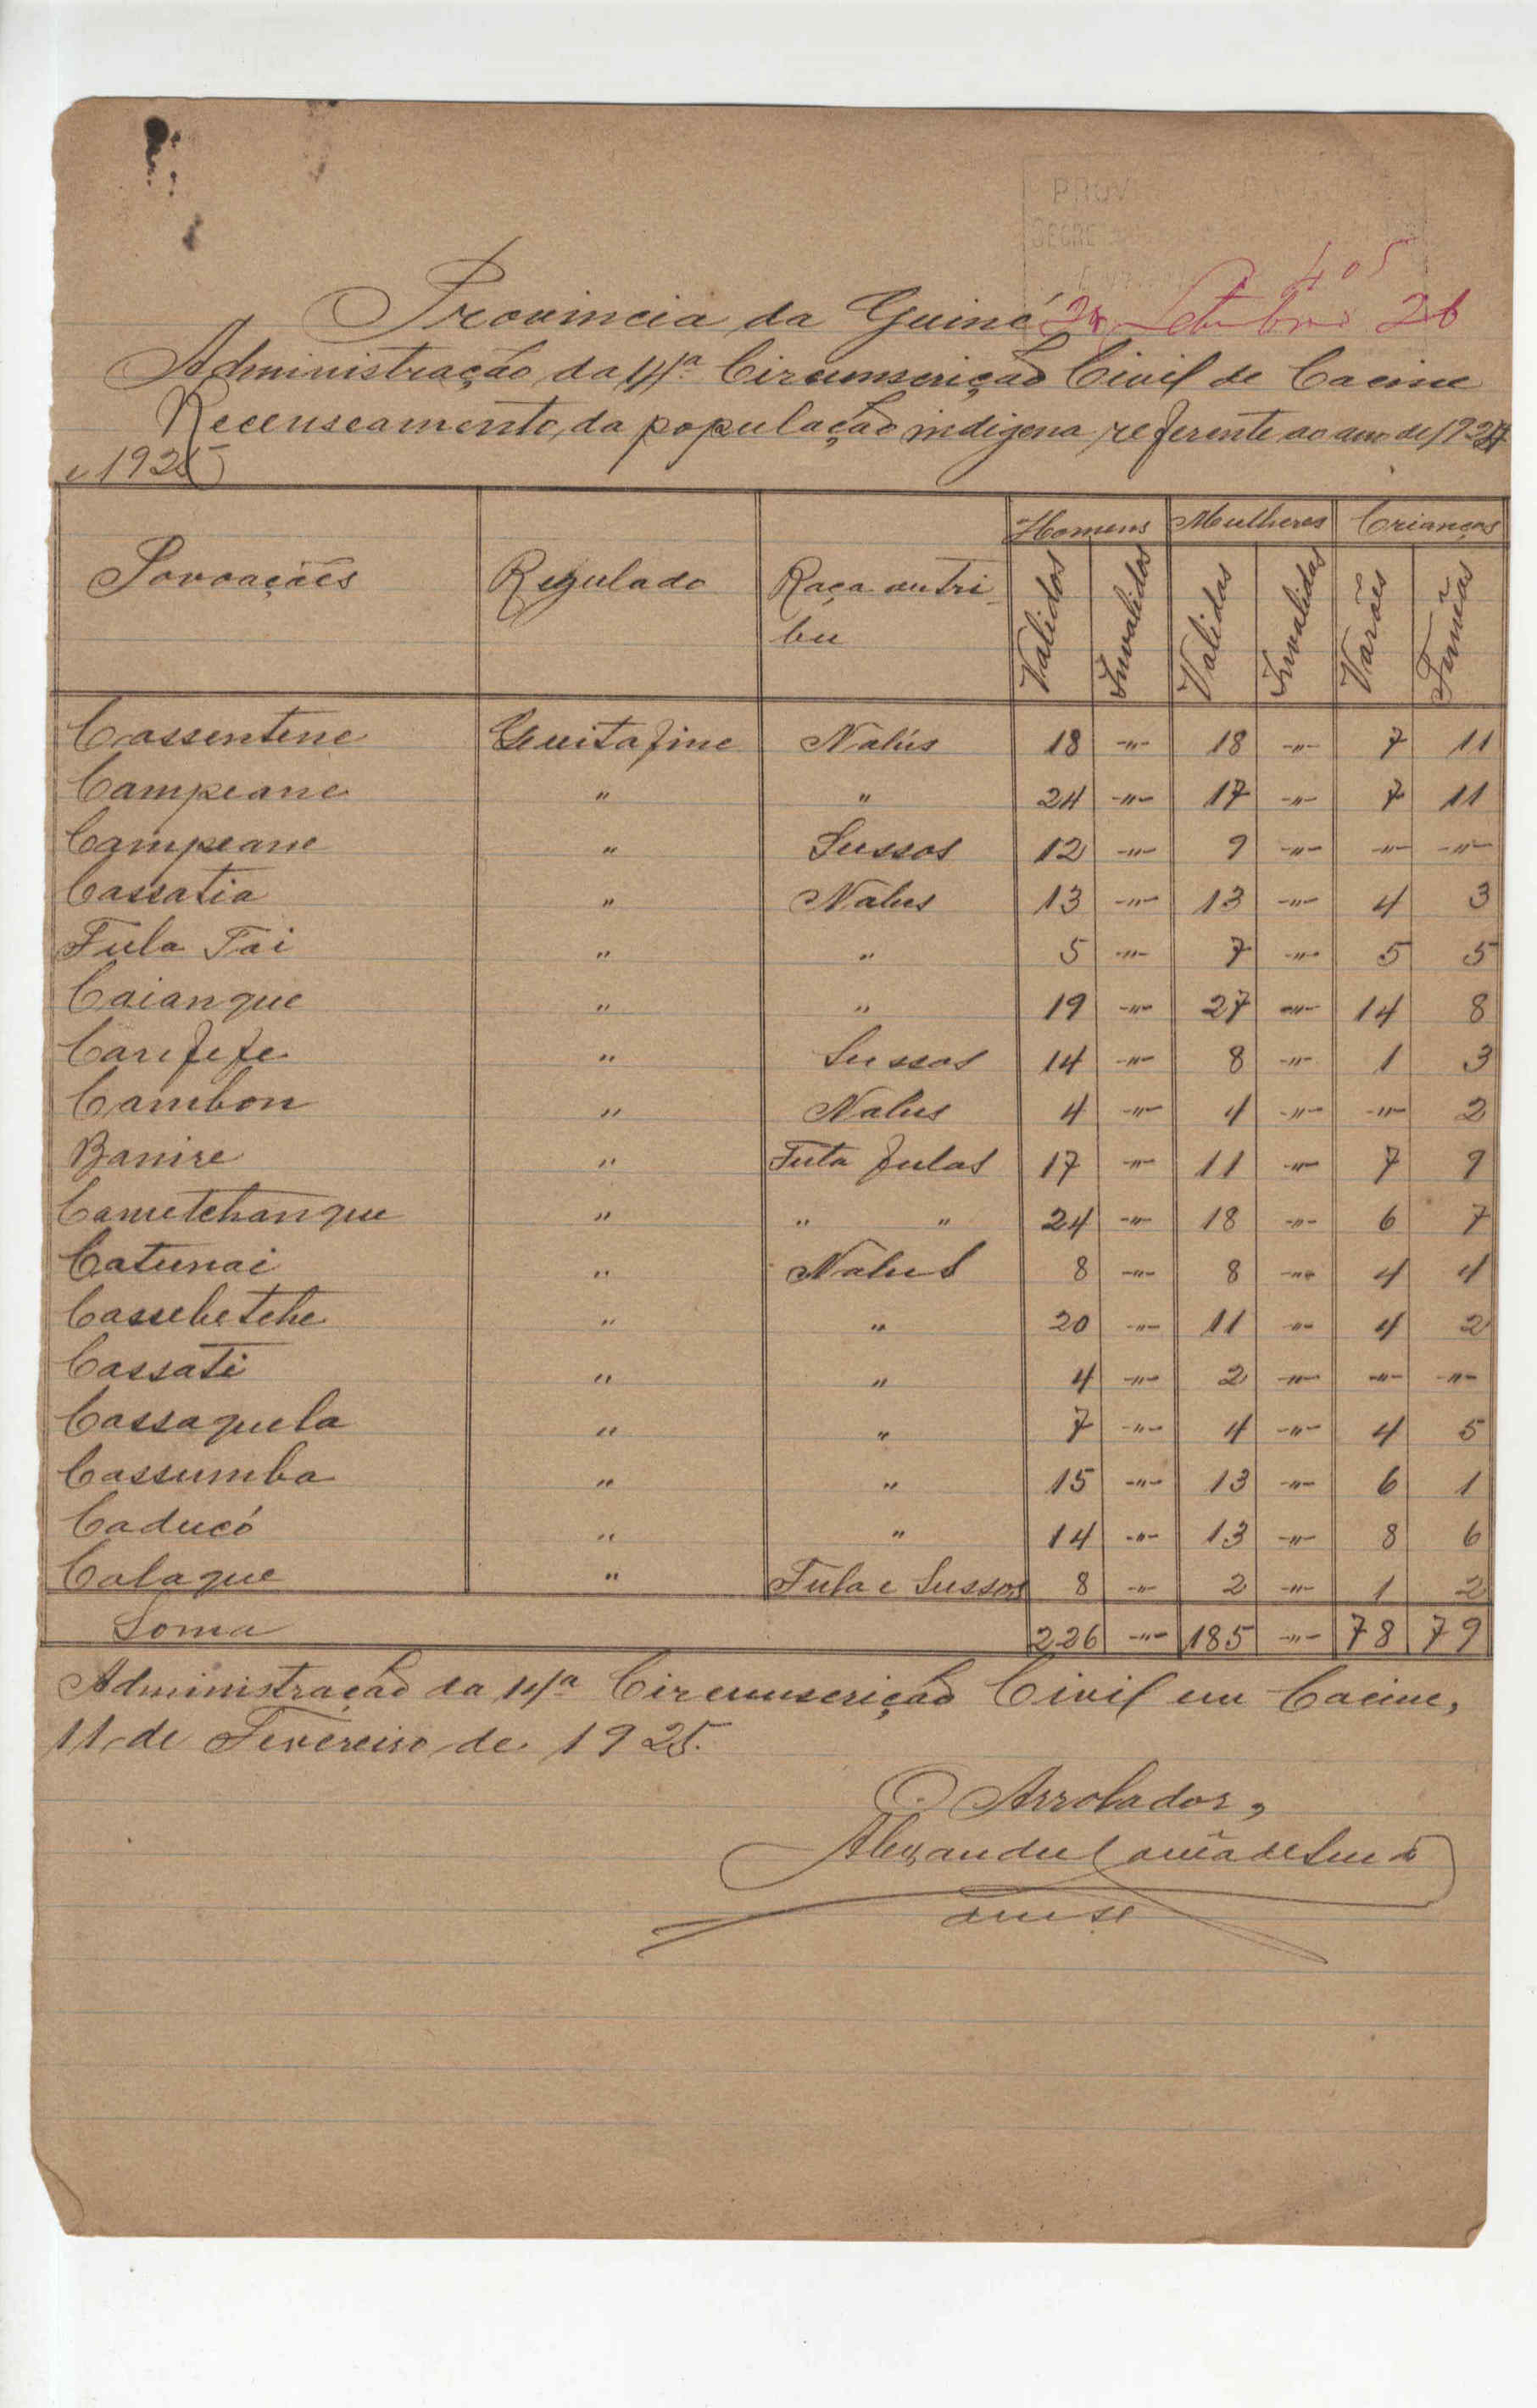 PROV
SECRE
405
Provincia da Guiné 24 Setembro 26
Administração da 11ª Circumscrição Civil de Cacine
Recenseamento da população indigena referente ao ano de 1924
e 1925
Homens Mulheres Crianças
Povoações Regulado Raça ou tri-
bu
Validos Invalidos Validas Invalidas Varões Femeas
Cassentene Guitafine Nalús 18 -"- 18 -"- 7 11
Campeane " " 24 -"- 17 -"- 7 11
Campeane " Sussos 12 -"- 9 -"- -"- -"-
Cassatia " Nalus 13 -"- 13 -"- 4 3
Fula Tai " " 5 -"- 7 -"- 5 5
Caianque " " 19 -"- 27 -"- 14 8
Canfefe " Sussos 14 -"- 8 -"- 1 3
Cambon " Nalus 4 -"- 4 -"- -"- 2
Banire " Futa fulas 17 -"- 11 -"- 7 9
Cametchanque " " " 24 -"- 18 -"- 6 7
Catunai " Nalus 8 -"- 8 -"- 4 4
Cassebetche " " 20 -"- 11 -"- 4 2
Cassati " " 4 -"- 2 -"- -"- -"-
Cassaquela " " 7 -"- 4 -"- 4 5
Cassumba " " 15 -"- 13 -"- 6 1
Caducó " " 14 -"- 13 -"- 8 6
Calaque " Fula e Sussos 8 -"- 2 -"- 1 2
Soma 226 -"- 185 -"- 78 79
Administração da 11ª Circumscrição Civil em Cacine,
11 de Fevereiro de 1925.
O Arrolador,
Alexandre